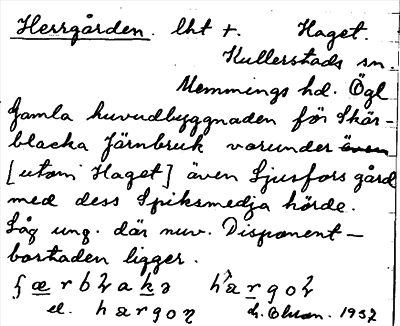 Herrgården. lht +. Haget.
Kullerstads sn.
Memmings hd. Ögl
Gamla huvudbyggnaden för Skär-
blacka Järnbruk varunder även
[utom Haget] även Ljusfors gård
med dess Spiksmedja hörde.
Låg ung. där nuv. Disponent-
bostaden ligger.
el. hargoŋ 1937